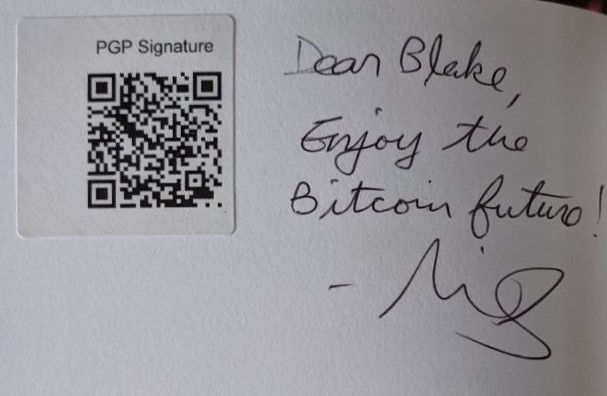 PGP Signature
Dear Blake,
Enjoy the
Bitcoin future!